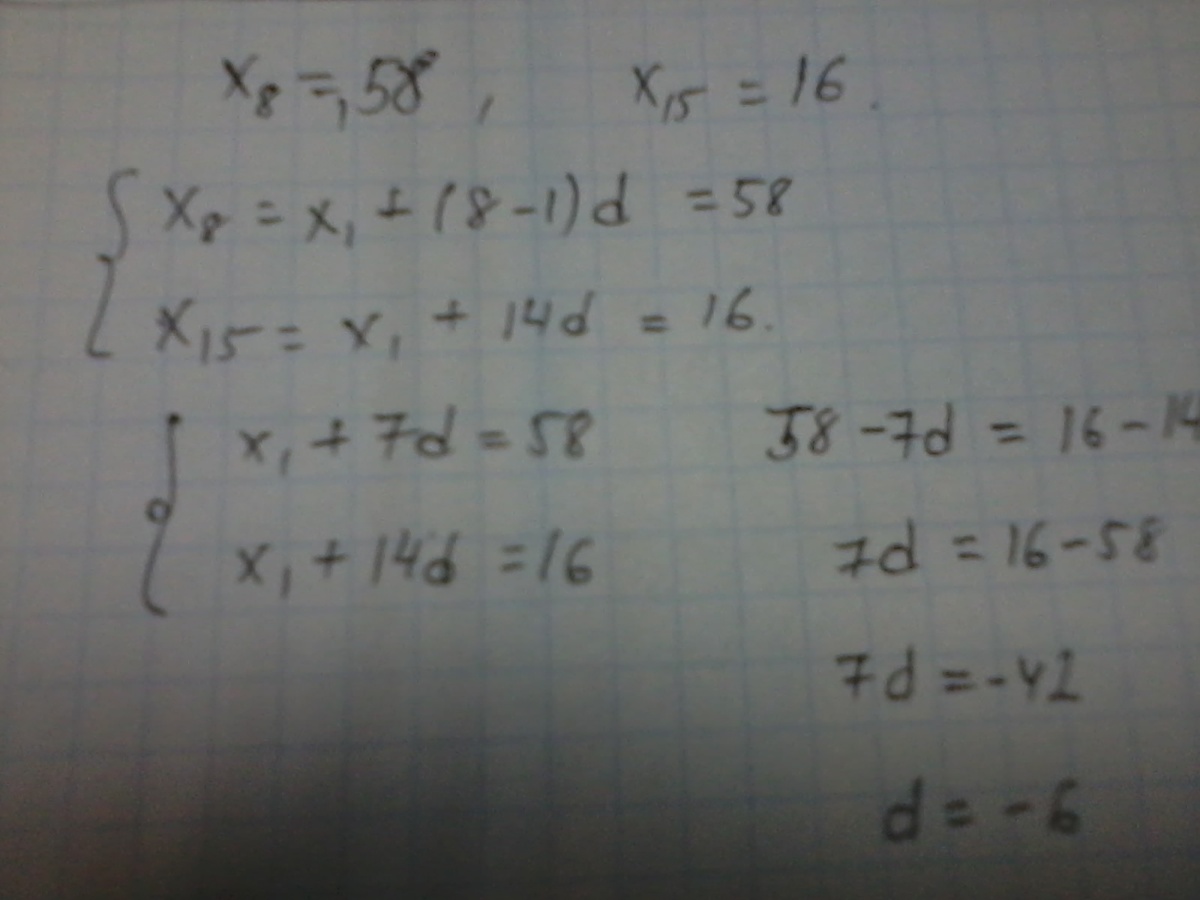 x₈ = 58, x₁₅ = 16.
x₈ = x₁ + (8-1)d = 58
x₁₅ = x₁ + 14d = 16.
x₁ + 7d = 58
x₁ + 14d = 16
58 - 7d = 16 - 14
7d = 16 - 58
7d = -42
d = -6